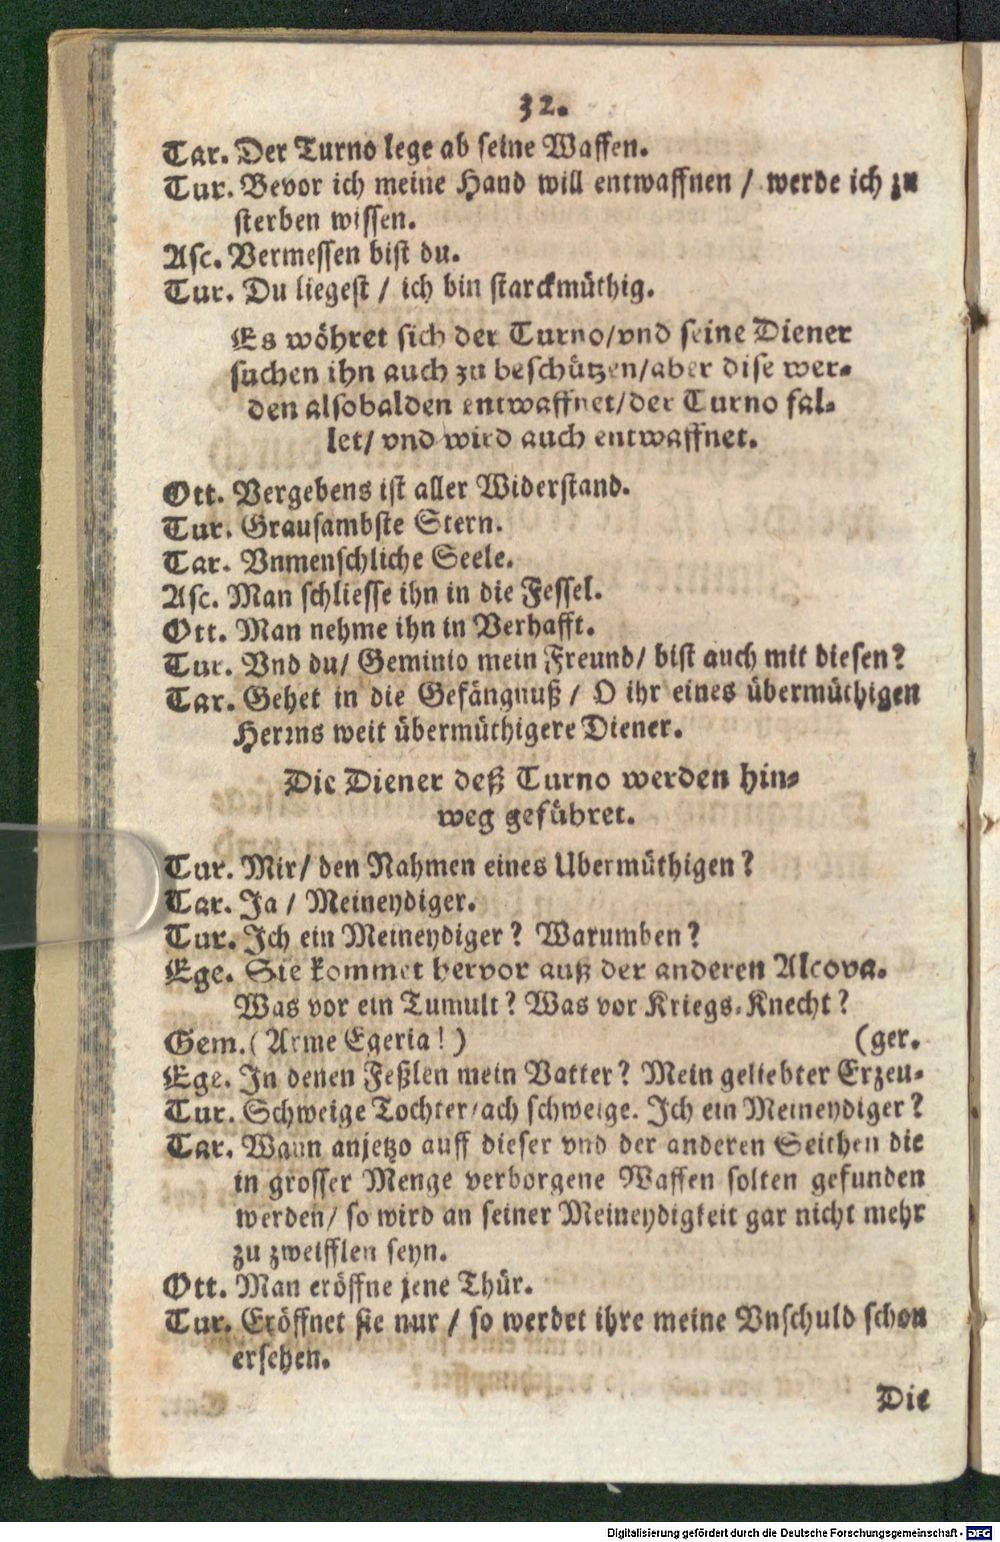 32.
Tar. Der Turno lege ab seine Waffen.
Tur. Bevor ich meine Hand will entwaffnen / werde ich zu
sterben wissen.
Asc. Vermessen bist du.
Tur. Du liegest / ich bin starckmüthig.
Es wöhret sich der Turno/vnd seine Diener
suchen ihn auch zu beschützen/aber dise wer-
den alsobalden entwaffnet/der Turno fal-
let/ vnd wird auch entwaffnet.
Ott. Vergebens ist aller Widerstand.
Tur. Grausambste Stern.
Tar. Vnmenschliche Seele.
Asc. Man schliesse ihn in die Fessel.
Ott. Man nehme ihn in Verhafft.
Tur. Vnd du/ Geminio mein Freund/ bist auch mit diesen?
Tar. Gehet in die Gefängnuß / O ihr eines übermüthigen
Herrns weit übermüthigere Diener.
Die Diener deß Turno werden hin-
weg geführet.
Tur. Mir/ den Nahmen eines Ubermüthigen?
Tar. Ja / Meineydiger.
Tur. Ich ein Meineydiger? Warumben?
Ege. Sie kommet hervor auß der anderen Alcova.
Was vor ein Tumult? Was vor Kriegs-Knecht?
Gem. (Arme Egeria!) (ger.
Ege. In denen Feßlen mein Vatter? Mein geliebter Erzeu-
Tur. Schweige Tochter/ach schweige. Ich ein Meineydiger?
Tar. Wann anjetzo auff dieser vnd der anderen Seithen die
in grosser Menge verborgene Waffen solten gefunden
werden/ so wird an seiner Meineydigkeit gar nicht mehr
zu zweifflen seyn.
Ott. Man eröffne jene Thür.
Tur. Eröffnet sie nur / so werdet ihre meine Vnschuld schon
ersehen.
Die
Digitalisierung gefördert durch die Deutsche Forschungsgemeinschaft - DFG